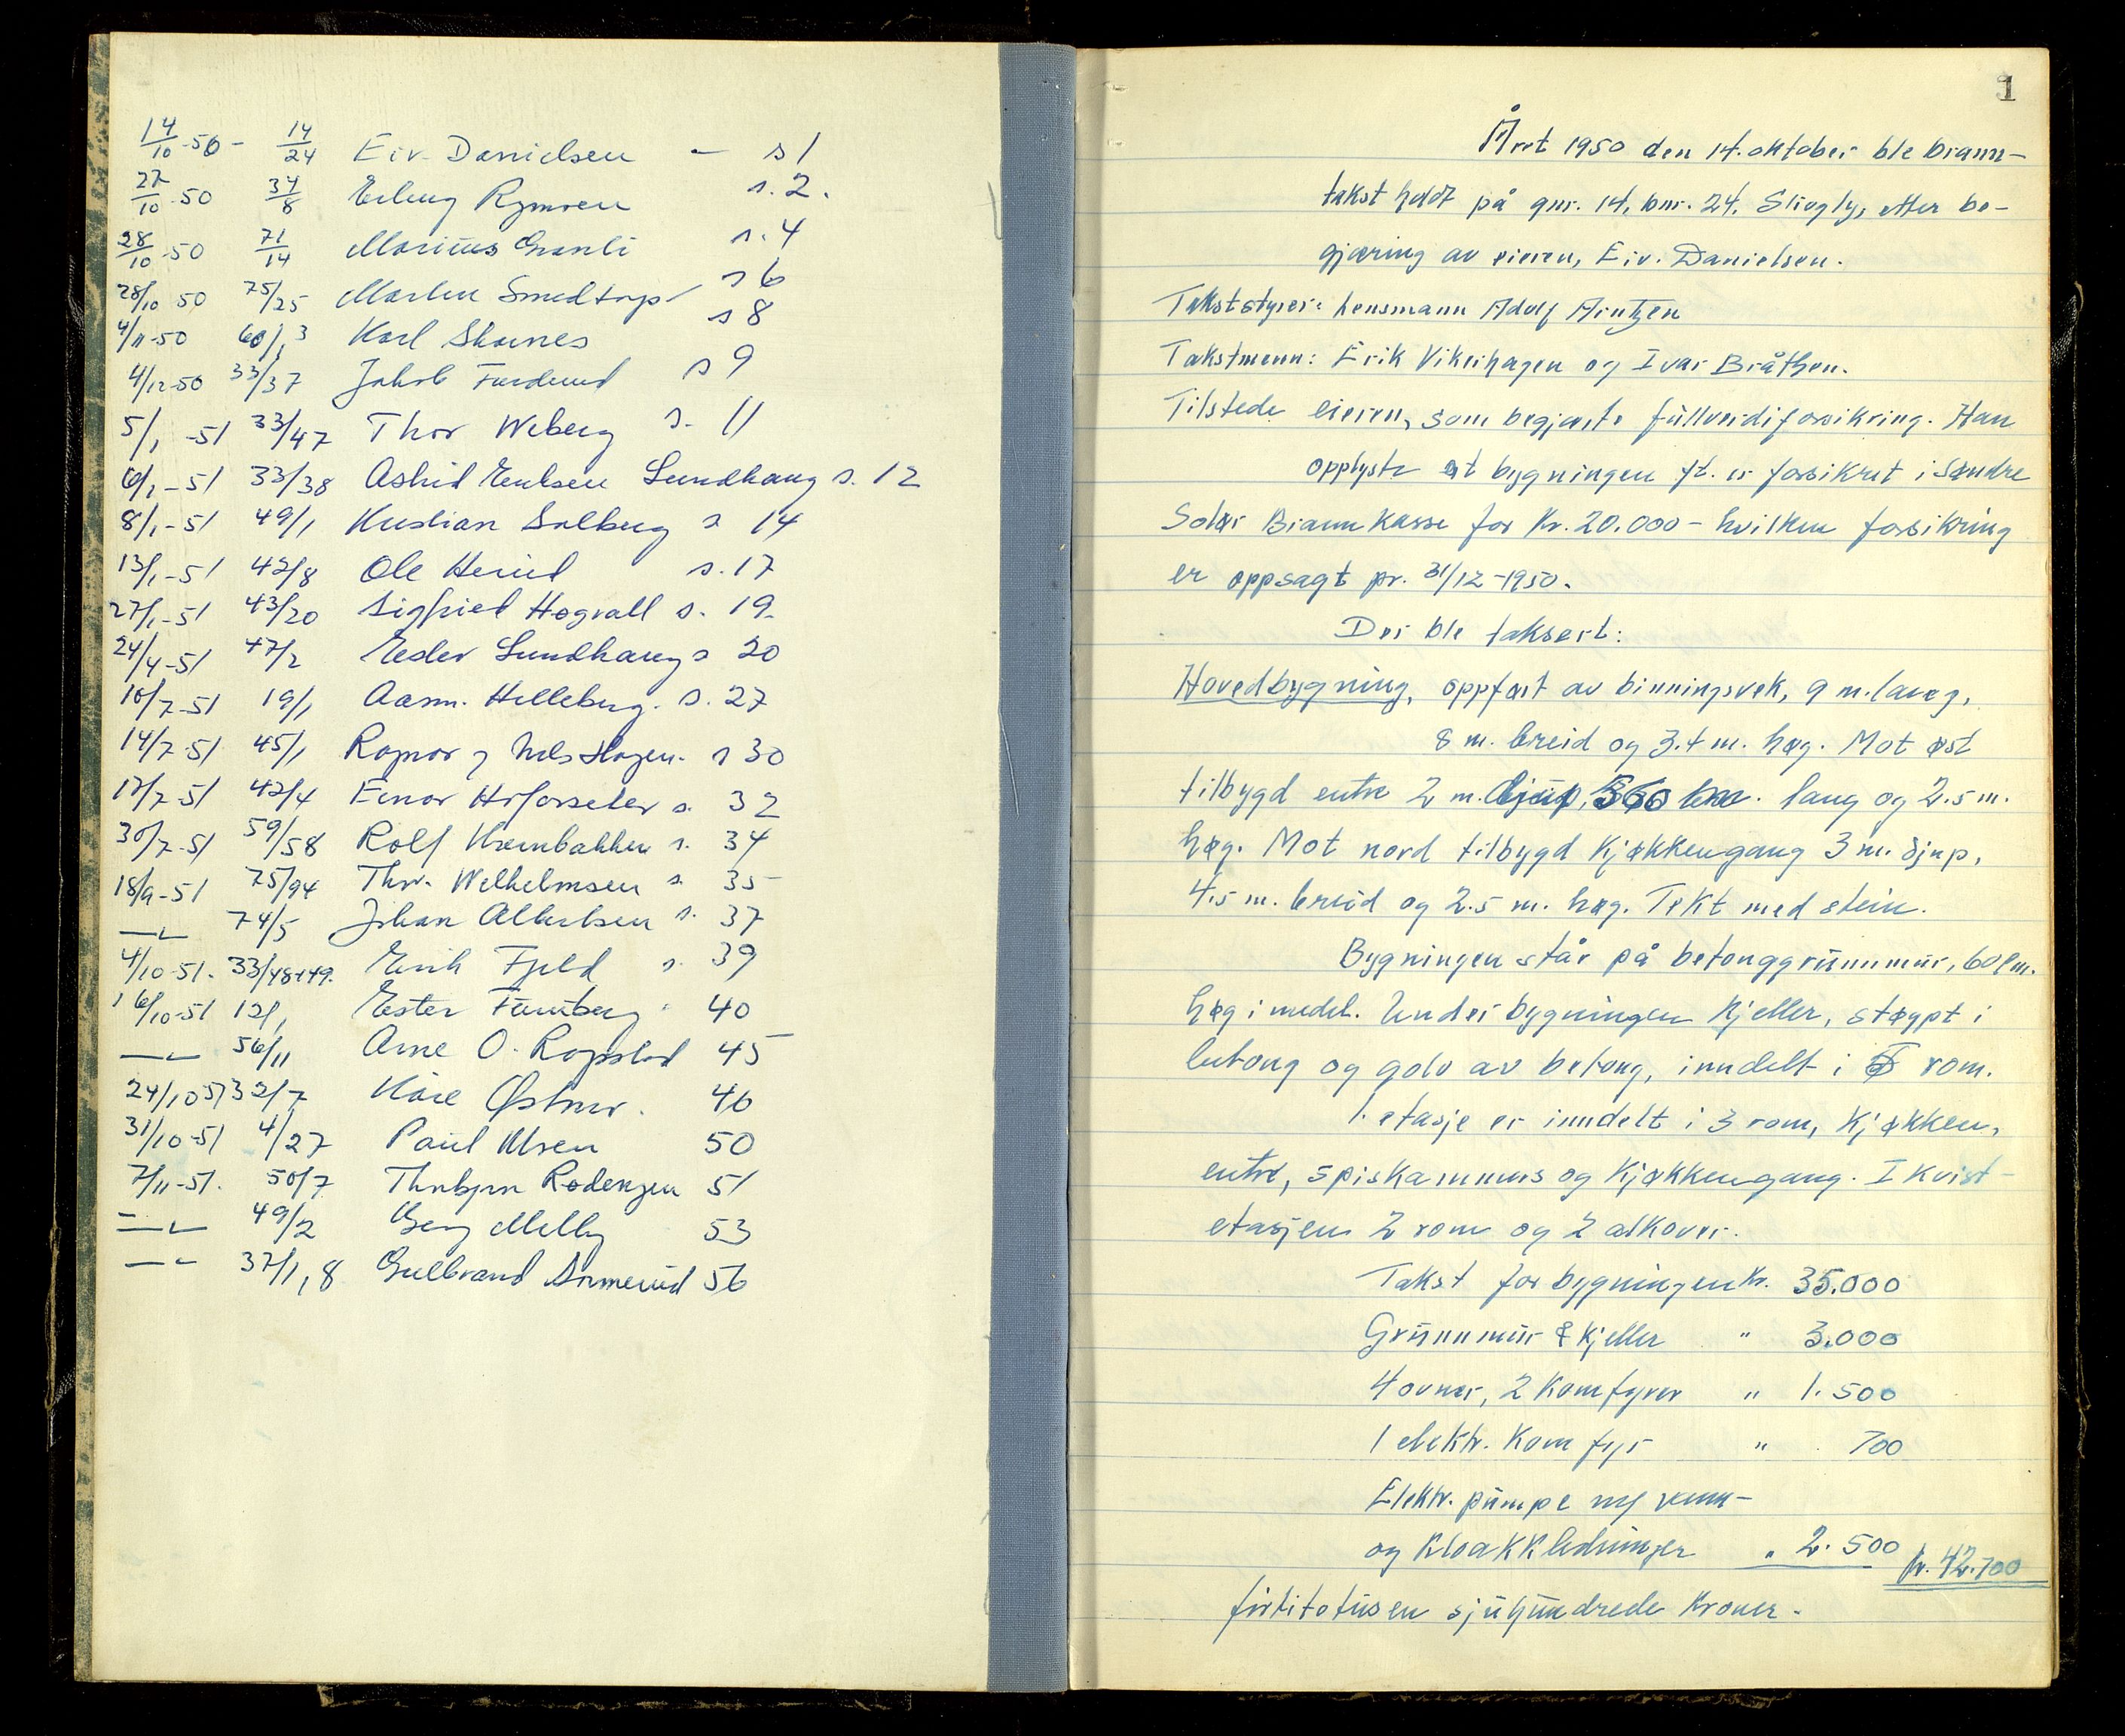 14/10-50 - 14/24 Eiv. Danielsen - s 1
27/10-50 34/8 Erling Rymoen s. 2.
28/10-50 71/14 Marius Granli s. 4
28/10 50 75/25 Martin Smedtorp s 6
4/11-50 60/1,3 Karl Skarnes s 8
4/12-50 33/37 Jakob Furulund s 9
5/1-51 33/47 Thor Weberg s. 11
6/1-51 33/38 Astrid Eriksen Lundhaug s. 12
8/1-51 49/1 Kristian Solberg s 14
13/1-51 42/8 Ole Herud s. 17
27/1-51 43/20 Sigfried Hogvall s. 19.
24/4-51 47/2 Lundhaug s 20
10/7-51 19/1 Aasm. Helleberg. s. 27
14/7-51 45/1 Ragnar og Nils Hagen. s 30
17/7-51 42/4 Einar s. 32
30/7-51 59/58 Rolf s. 34
18/9-51 75/94 Thv. Wilhelmsen s. 35
—"— 74/5 Johan Albertsen s. 37
4/10-51. 33/48+49. Erik Fjeld s. 39
16/10-51 12/1 Ester 40
—"— 56/11 Arne O. 45
24/10 51 32/7 Kåre Østmo. 46
31/10-51 4/27 Paul Olsen 50
7/11-51. 50/7 Thorbjørn Rodengen 51
—"— 49/2 Georg Melby 53
—"— 37/1,8 Gulbrand Sormerud 56
1
Året 1950 den 14. oktober ble brann-
takst holdt på gnr. 14, bnr. 24, Skogly, etter be-
gjæring av eieren, Eiv. Danielsen.
Takststyrer: Lensmann Adolf Arntzen
Takstmenn: Erik Vikerhagen og Ivar Bråthen.
Tilstede eieren, som begjærte fullverdiforsikring. Han
opplyste at bygningen ft. er forsikret i Søndre
Solør Brannkasse for kr. 20.000 - hvilken forsikring
er oppsagt pr. 31/12-1950.
Der ble taksert:
Hovedbygning, oppført av binningsverk, 9 m. lang,
8 m. breid og 3.4 m. høg. Mot øst
tilbygd entre 2 m. djup, lang og 2.5 m.
høg. Mot nord tilbygd kjøkkengang 3 m. djup,
4.5 m. breid og 2.5 m. høg. Tekt med stein.
Bygningen står på betonggrunnmur, 60 cm.
høg i medel. Under bygningen kjeller, støypt i
betong og golv av betong, inndelt i rom.
1. etasje er inndelt i 3 rom, kjøkken,
entre, spiskammers og kjøkkengang. I kvist-
etasjen 2 rom og 2 alkover.
Takst for bygningen kr. 35.000
Grunnmur & kjeller " 3.000
4 ovner, 2 komfyrer " 1.500
1 elektr. komfyr " 700
Elektr. pumpe m/ vann-
og kloakkledninger " 2.500 kr. 42.700
førtitotusen sjuhundrede kroner.